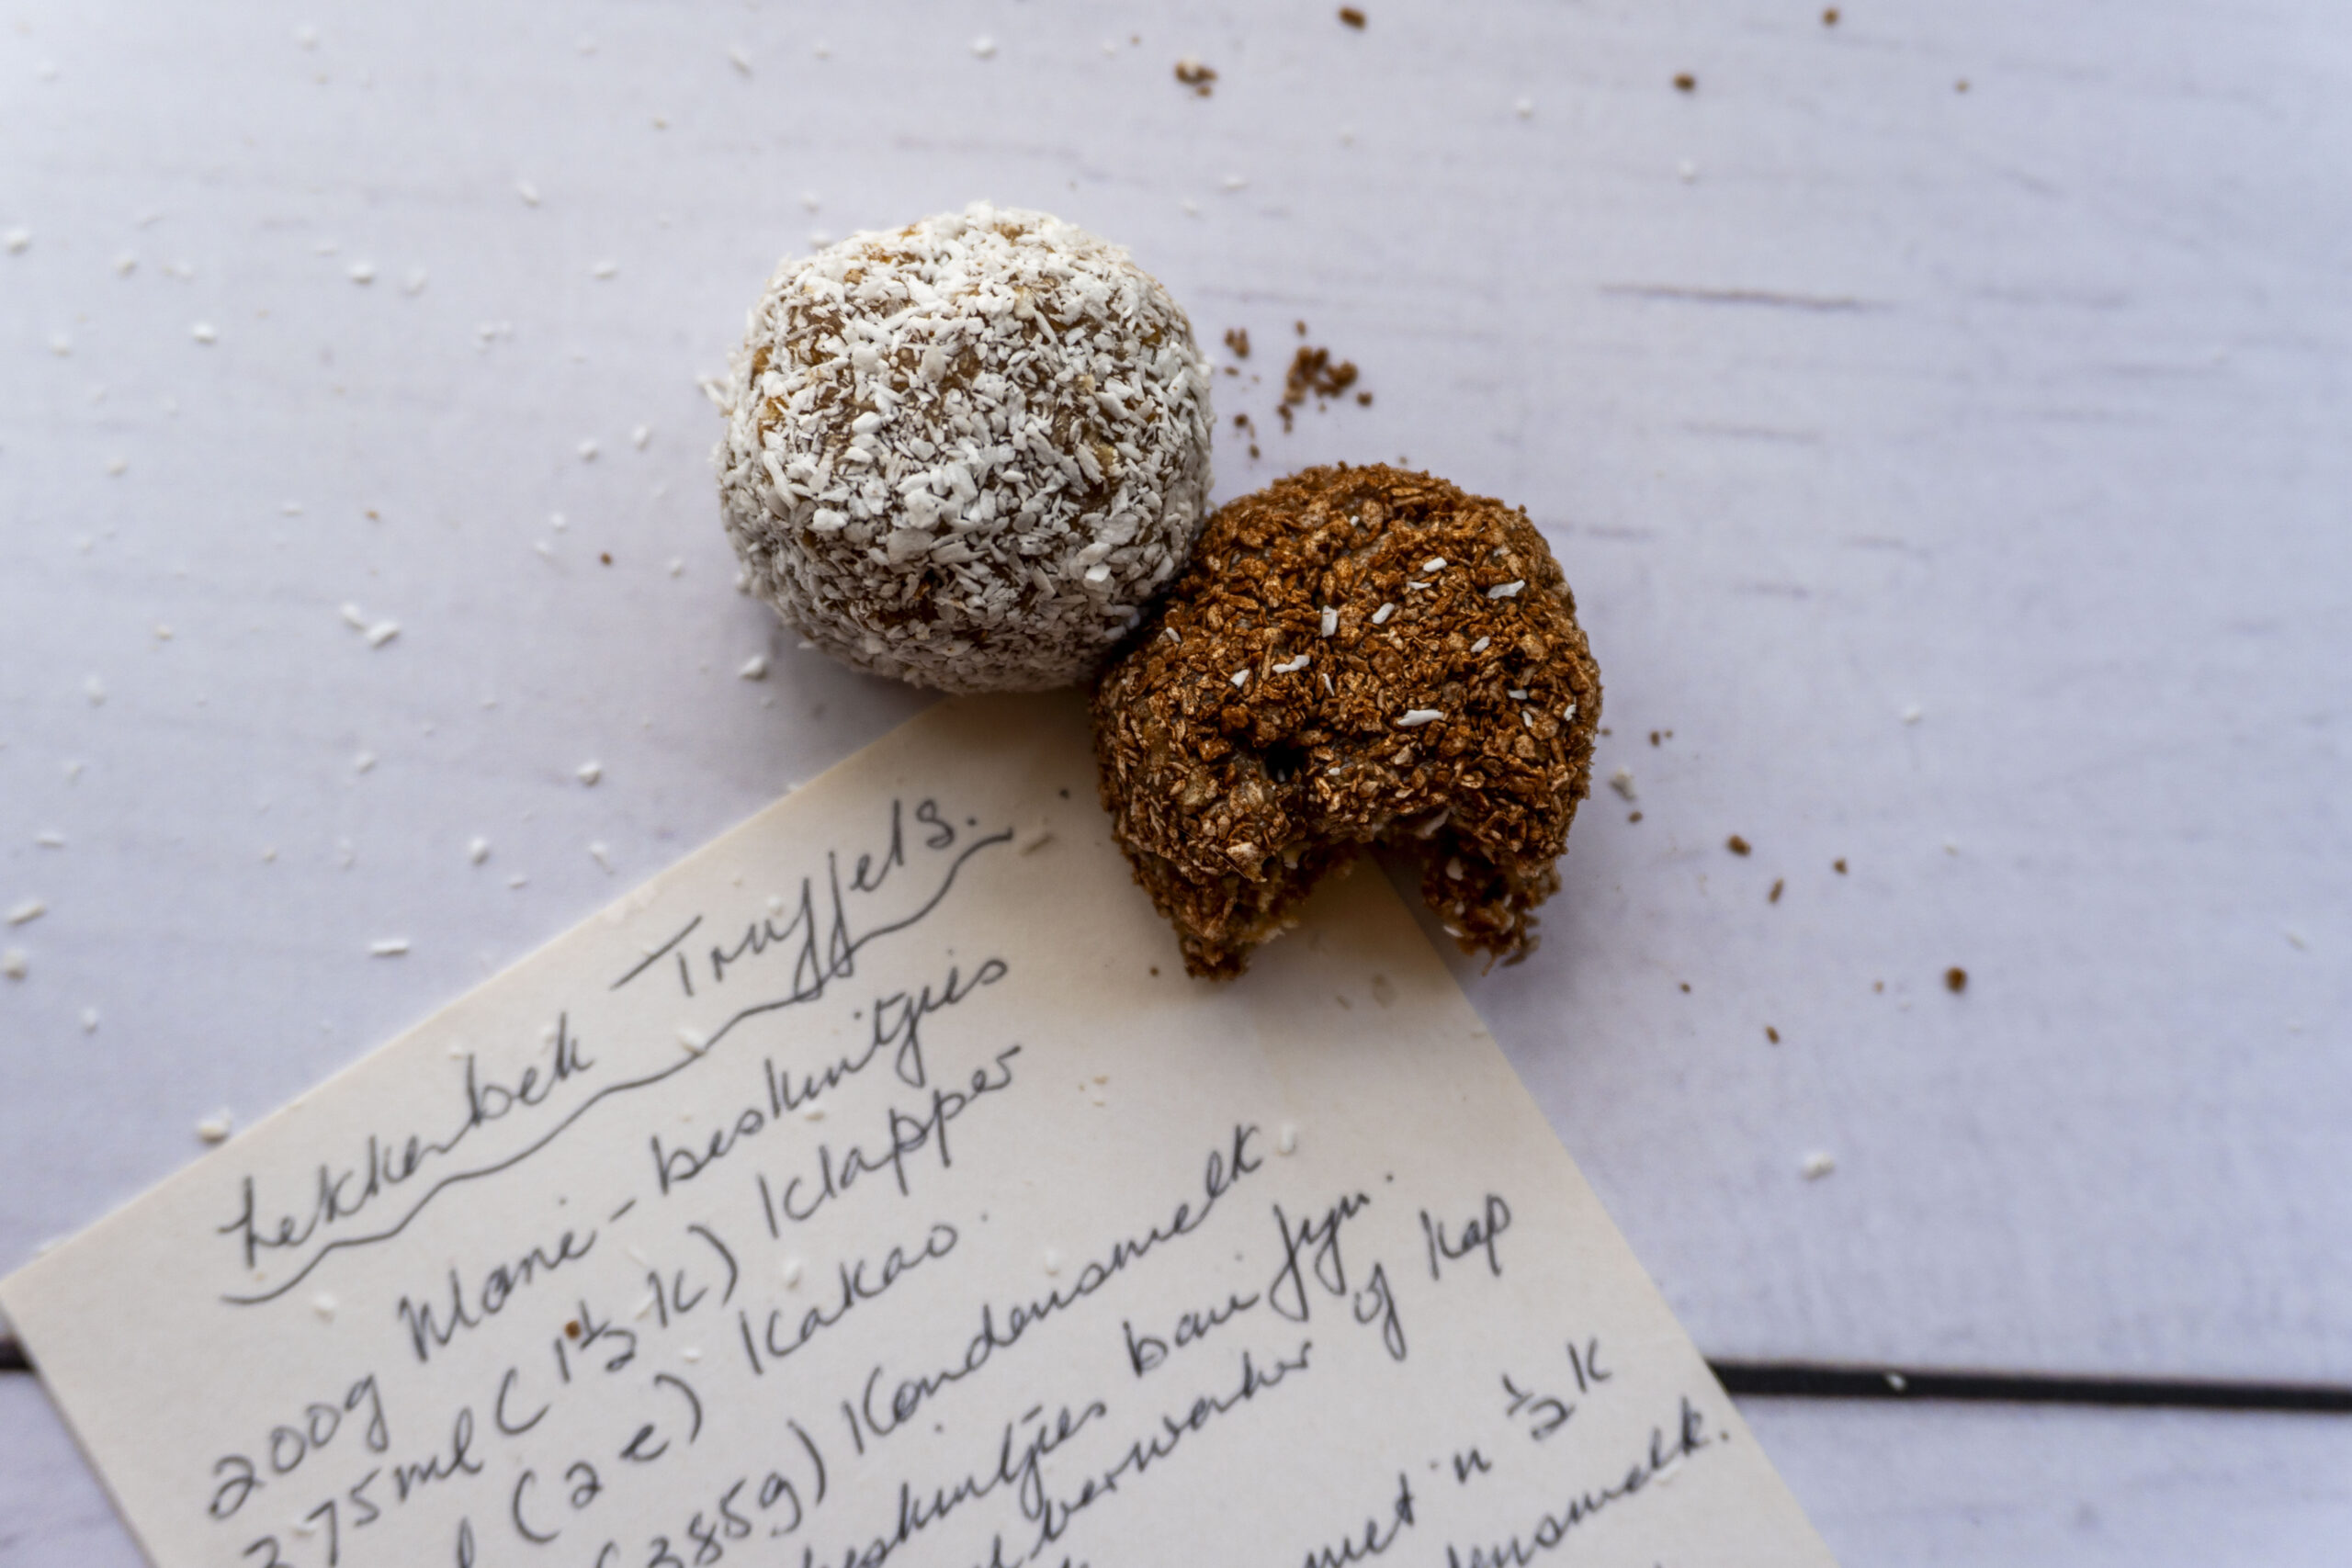 Lekkerbek Truffels.
200g Marie-beskuitjies
375ml (1½ k) klapper
(2 e) kakao.
(385g) kondensmelk.
beskuitjies baie fyn.
verwerker of kap
met 'n ½ k
kondensmelk.